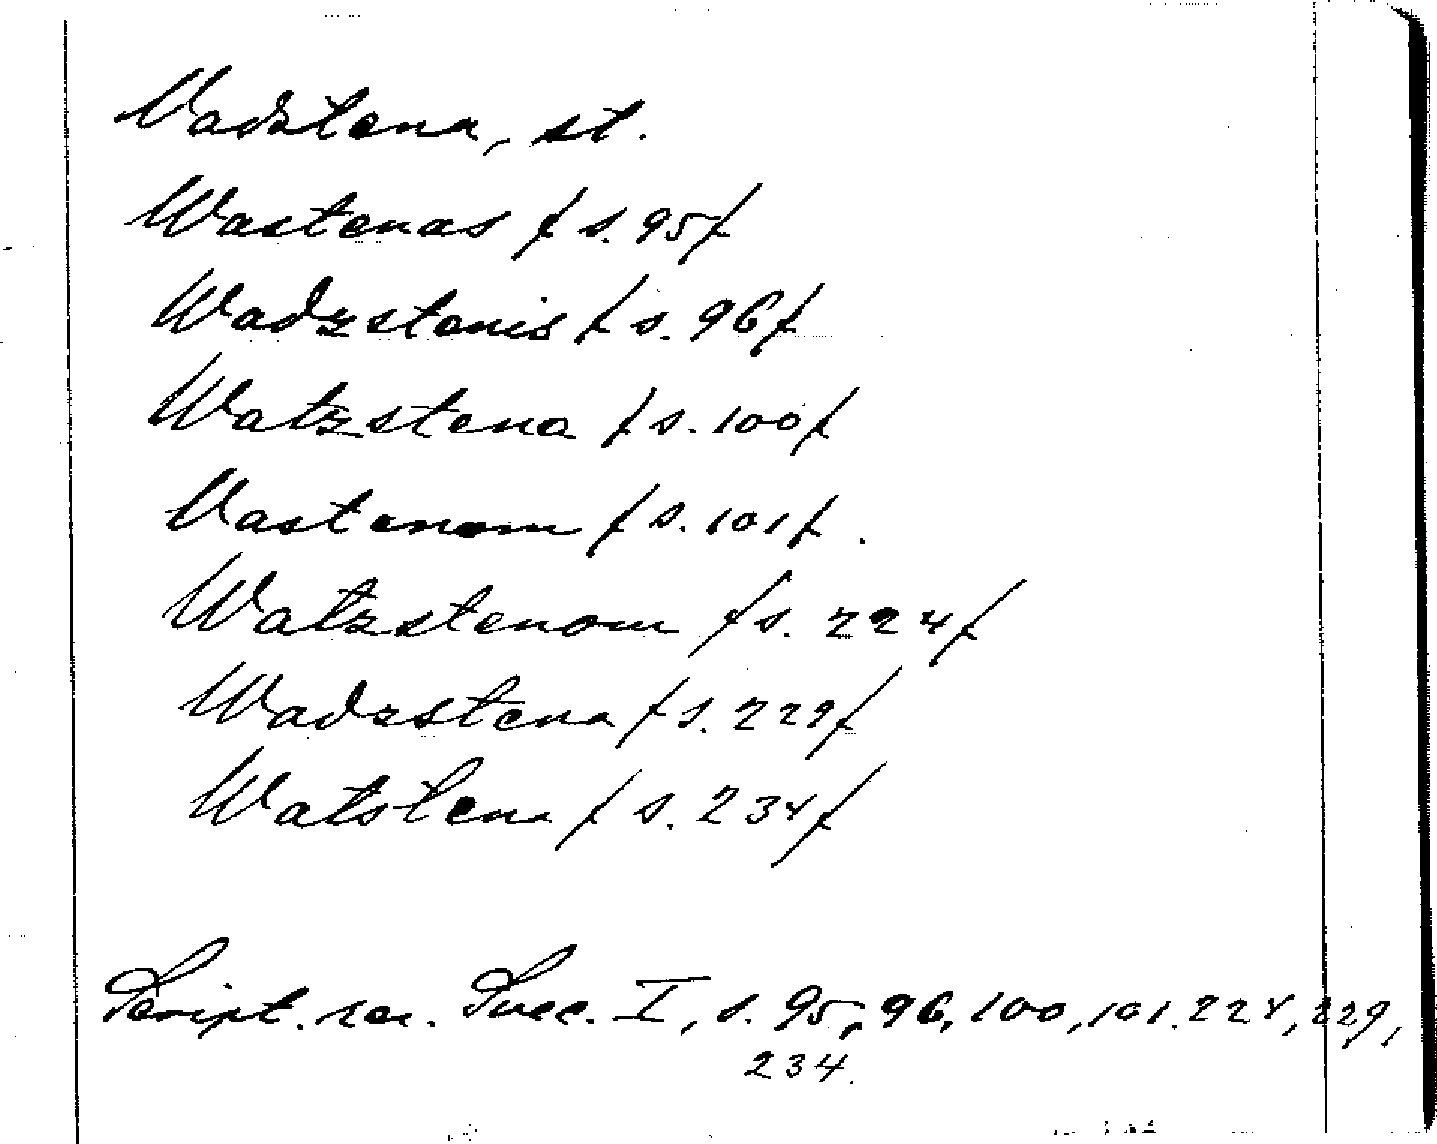 Vadstena, st.
Wastenas / s. 95/
Wadzstenis / s. 96/
Watzstena / s. 100/
Vastenom / s. 101/.
Watzstenom / s. 224/
Wadzstena / s. 229/
Watstena / s. 234/
Script. rer. Suec. I, s. 95, 96, 100, 101. 224, 229,
234.